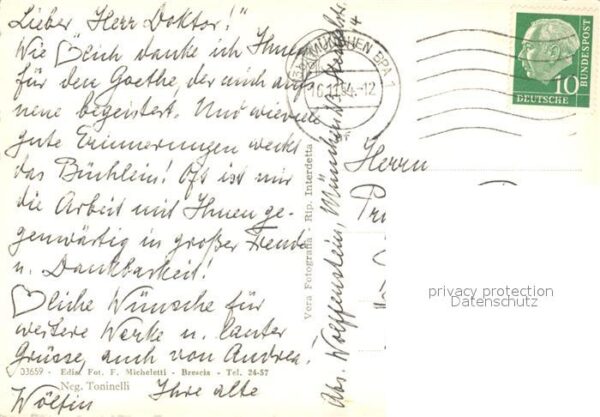 Lieber Herr Doktor!
Wie ♡lich danke ich Ihnen
für den Goethe, der mich aufs
neue begeistert. Und wieviele
gute Erinnerungen weckt
das Büchlein! Oft ist mir
die Arbeit mit Ihnen ge-
genwärtig in großer Freude
u. Dankbarkeit!
♡liche Wünsche für
weitere Werke u. lauter
Grüsse, auch von Andrea!
03659 - Ediz. Fot. F. Micheletti - Brescia - Tel. 24-57
Neg. Toninelli
Ihre alte
Wölfin
Vera Fotografia - Rip. Interdetta
Abs. Wolffenstein, München
MÜNCHEN BPA 1
16.11.54.-12
10
DEUTSCHE
BUNDESPOST
Herrn
privacy protection
Datenschutz